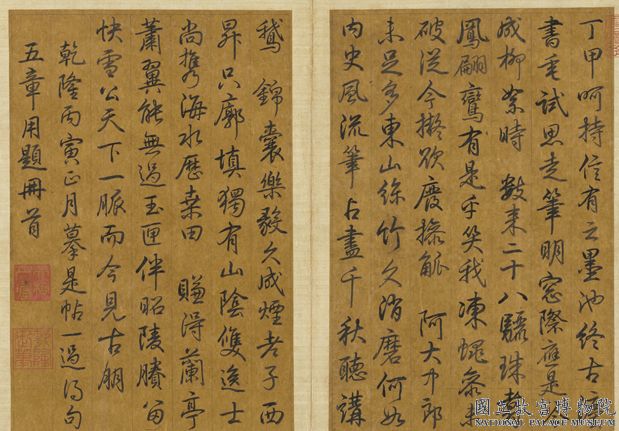 丁甲呵持信有之墨池終古
書毫試思走筆明窗際應是
成柳絮時 數來二十八驪珠老
鳳翩鸞有是乎笑我凍蠅參
破從今擬欲廢操觚 阿大中郎
未足多東山絲竹久消磨何如
內史風流筆占盡千秋聽講
鵝 錦囊樂毅久成煙老子西
昇只廓填獨有山陰雙逸士
尚攜海水歷桑田 賺得蘭亭
蕭翼能無過玉匣伴昭陵賸留
快雪公天下一脈而今見古朋
乾隆丙寅正月摹是帖一過得句
五章用題冊首
國立故宮博物院
NATIONAL PALACE MUSEUM